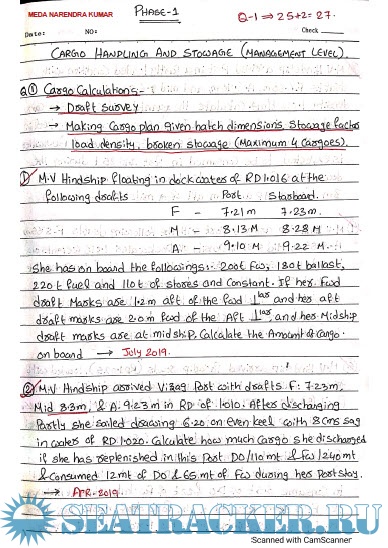 MEDA NARENDRA KUMAR
PHASE-1
Q-1 ⇒ 25+2 = 27.
Date:
NO:
Check
CARGO HANDLING AND STOWAGE (MANAGEMENT LEVEL).
Q① Cargo Calculations:-
→ Draft Survey
→ Making Cargo plan given hatch dimensions, stowage factor
load density, broken stowage (Maximum 4 Cargoes).
① M.V Hindship floating in dock waters of RD 1.016 at the
following drafts
Port Starboard.
F - 7.21 m 7.23 m.
M - 8.13 M 8.28 M
A - 9.10 M 9.22 M.
She has on board the followings: 200t FW, 180t ballast,
220t fuel and 110t of stores and Constant. If her fwd
draft Marks are 1.2m aft of the fwd ⊥lar and her aft
draft marks are 2.0m fwd of the Aft ⊥lar, and her Midship
draft marks are at midship, Calculate the Amount of Cargo
on board → July 2019.
② M.V Hindship arrived Vizag Port with drafts F: 7.23m,
Mid 8.3m, & A: 9.23m in RD of 1.010. After discharging
Partly she sailed drawing 6.20 on even keel with 8 cms sag
in water of RD 1.020. Calculate how much Cargo she discharged
if she has replenished in this Port DO/110mt & FW/240mt
& Consumed 12mt of DO & 65mt of FW during her Port stay.
→ APR-2019.
SEATRACKER.RU
Scanned with CamScanner